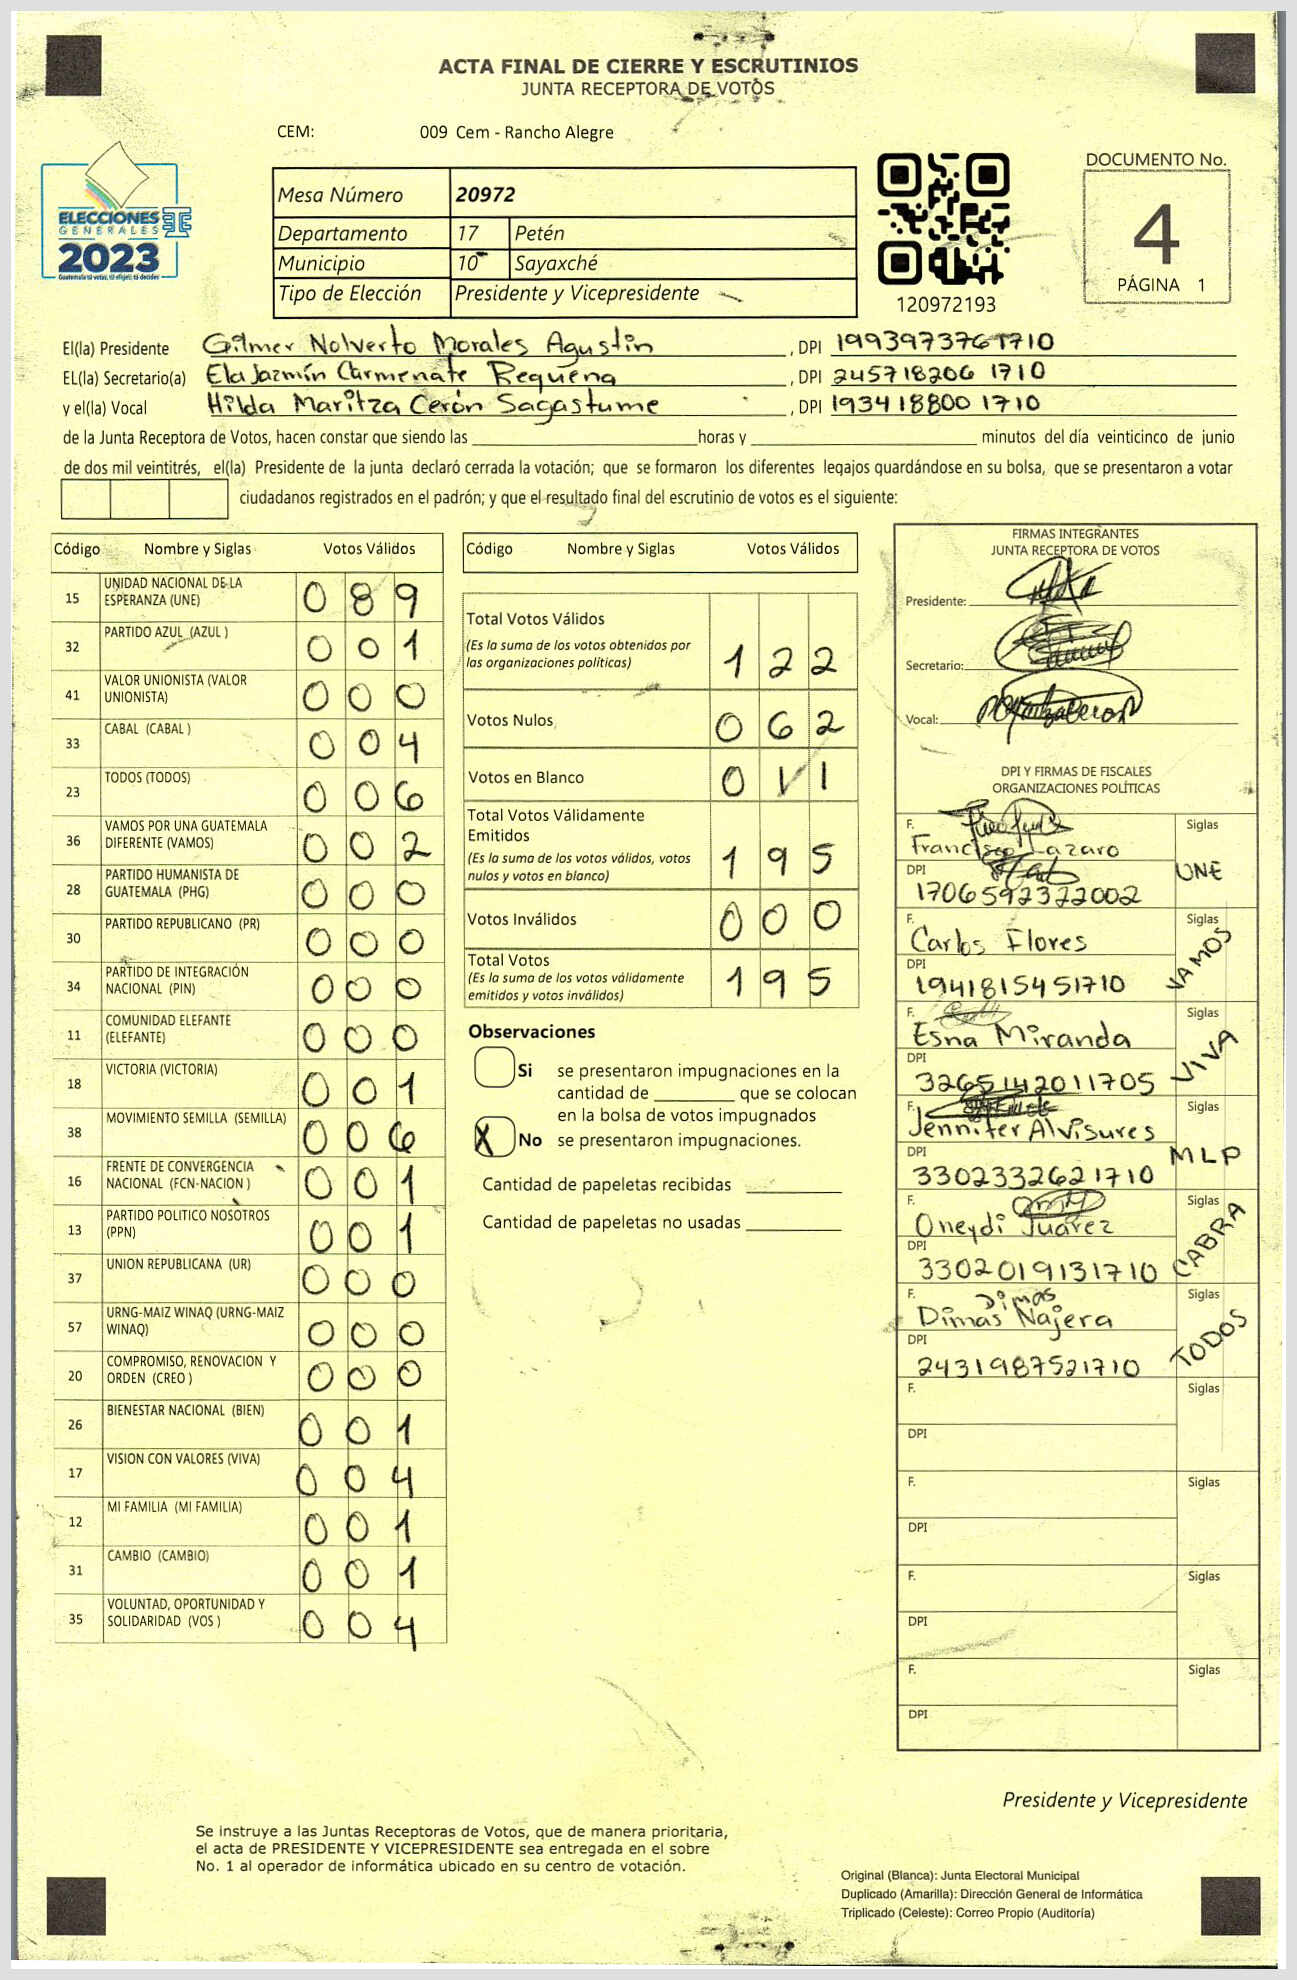 ACTA FINAL DE CIERRE Y ESCRUTINIOS
JUNTA RECEPTORA DE VOTOS
CEM: 009 Cem - Rancho Alegre
ELECCIONES
GENERALES
2023
Mesa Número 20972
Departamento 17 Petén
Municipio 10 Sayaxché
Tipo de Elección Presidente y Vicepresidente
120972193
DOCUMENTO No.
4
PÁGINA 1
El(la) Presidente Gilmer Nolverto Morales Agustin, DPI
EL(la) Secretario(a) Ela Jazmín Carmenate Requena, DPI 245718206 1710
y el(la) Vocal Hilda Maritza Cerón Sagastume, DPI 193418800 1710
de la Junta Receptora de Votos, hacen constar que siendo las horas y minutos del día veinticinco de junio
de dos mil veintitrés, el(la) Presidente de la junta declaró cerrada la votación; que se formaron los diferentes legajos guardándose en su bolsa, que se presentaron a votar
ciudadanos registrados en el padrón; y que el resultado final del escrutinio de votos es el siguiente:
Código Nombre y Siglas Votos Válidos
15 UNIDAD NACIONAL DE LA ESPERANZA (UNE) 0 8 9
32 PARTIDO AZUL (AZUL ) 0 0 1
41 VALOR UNIONISTA (VALOR UNIONISTA) 0 0 0
33 CABAL (CABAL ) 0 0 4
23 TODOS (TODOS) 0 0 6
36 VAMOS POR UNA GUATEMALA DIFERENTE (VAMOS) 0 0 2
28 PARTIDO HUMANISTA DE GUATEMALA (PHG) 0 0 0
30 PARTIDO REPUBLICANO (PR) 0 0 0
34 PARTIDO DE INTEGRACIÓN NACIONAL (PIN) 0 0 0
11 COMUNIDAD ELEFANTE (ELEFANTE) 0 0 0
18 VICTORIA (VICTORIA) 0 0 1
38 MOVIMIENTO SEMILLA (SEMILLA) 0 0 6
16 FRENTE DE CONVERGENCIA NACIONAL (FCN-NACION ) 0 0 1
13 PARTIDO POLITICO NOSOTROS (PPN) 0 0 1
37 UNION REPUBLICANA (UR) 0 0 0
57 URNG-MAIZ WINAQ (URNG-MAIZ WINAQ) 0 0 0
20 COMPROMISO, RENOVACION Y ORDEN (CREO ) 0 0 0
26 BIENESTAR NACIONAL (BIEN) 0 0 1
17 VISION CON VALORES (VIVA) 0 0 4
12 MI FAMILIA (MI FAMILIA) 0 0 1
31 CAMBIO (CAMBIO) 0 0 1
35 VOLUNTAD, OPORTUNIDAD Y SOLIDARIDAD (VOS ) 0 0 4
Código Nombre y Siglas Votos Válidos
Total Votos Válidos
(Es la suma de los votos obtenidos por las organizaciones políticas) 1 2 2
Votos Nulos 0 6 2
Votos en Blanco 0 1 1
Total Votos Válidamente Emitidos
(Es la suma de los votos válidos, votos nulos y votos en blanco) 1 9 5
Votos Inválidos 0 0 0
Total Votos
(Es la suma de los votos válidamente emitidos y votos inválidos) 1 9 5
Observaciones
Si se presentaron impugnaciones en la
cantidad de que se colocan
en la bolsa de votos impugnados
X No se presentaron impugnaciones.
Cantidad de papeletas recibidas
Cantidad de papeletas no usadas
FIRMAS INTEGRANTES
JUNTA RECEPTORA DE VOTOS
Presidente:
Secretario:
Vocal:
DPI Y FIRMAS DE FISCALES
ORGANIZACIONES POLÍTICAS
F. Francisco Lazaro Siglas
DPI 1706592322002 UNE
F. Carlos Flores Siglas
DPI 1941815451710 VAMOS
F. Esna Miranda Siglas
DPI 3265142011705 VIVA
F. Jennifer Alvisures Siglas
DPI 3302332621710 MLP
F. Oneydi Juárez Siglas
DPI 3302019131710 CABRA
F. Dimas
Dimas Najera Siglas
DPI 2431987521710 TODOS
F. Siglas
DPI
F. Siglas
DPI
F. Siglas
DPI
F. Siglas
DPI
Presidente y Vicepresidente
Se instruye a las Juntas Receptoras de Votos, que de manera prioritaria,
el acta de PRESIDENTE Y VICEPRESIDENTE sea entregada en el sobre
No. 1 al operador de informática ubicado en su centro de votación.
Original (Blanca): Junta Electoral Municipal
Duplicado (Amarilla): Dirección General de Informática
Triplicado (Celeste): Correo Propio (Auditoría)